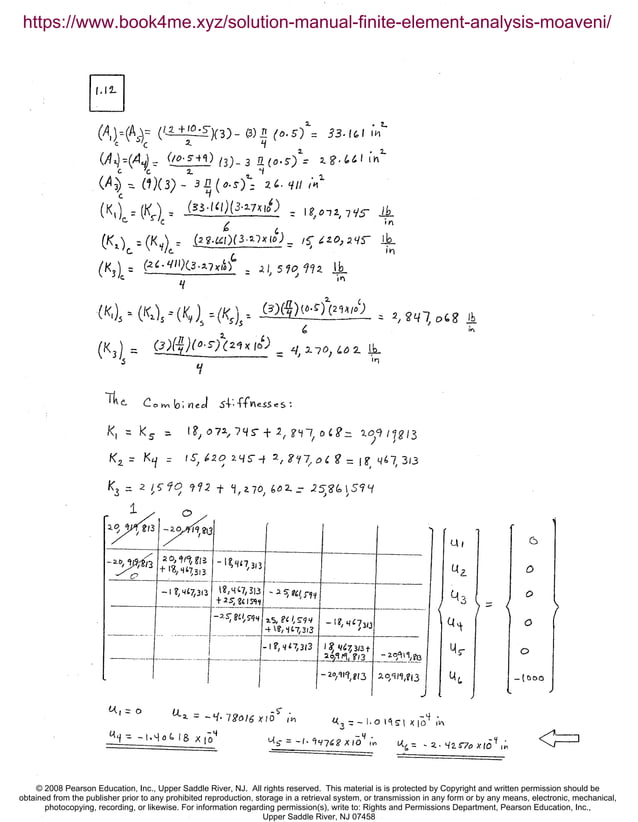 https://www.book4me.xyz/solution-manual-finite-element-analysis-moaveni/
1.12
(A₁)c=(A₅)c= ((12+10.5)/2)(3)-(3) π/4 (0.5)² = 33.161 in²
(A₂)c=(A₄)c= ((10.5+9)/2)(3)-3 π/4 (0.5)² = 28.661 in²
(A₃)c = (9)(3) - 3 π/4 (0.5)² = 26.411 in²
(K₁)c = (K₅)c = (33.161)(3.27×10⁶)/6 = 18,072,745 lb/in
(K₂)c = (K₄)c = (28.661)(3.27×10⁶)/6 = 15,620,245 lb/in
(K₃)c = (26.411)(3.27×10⁶)/4 = 21,590,992 lb/in
(K₁)s = (K₂)s = (K₄)s = (K₅)s = (3)(π/4)(0.5)²(29×10⁶)/6 = 2,847,068 lb/in
(K₃)s = (3)(π/4)(0.5)²(29×10⁶)/4 = 4,270,602 lb/in
The Combined stiffnesses:
K₁ = K₅ = 18,072,745 + 2,847,068 = 20,919813
K₂ = K₄ = 15,620,245 + 2,847,068 = 18,467,313
K₃ = 21,590,992 + 4,270,602 = 25,861,594
1 0
20,919,813 -20,919,813 u₁ 0
-20,919,813 0 20,919,813 +18,467,313 -18,467,313 u₂ 0
-18,467,313 18,467,313 +25,861594 -25,861,594 u₃ 0
-25,861,594 25,861,594 +18,467,313 -18,467,313 u₄ = 0
-18,467,313 18,467,313+ 20,919,813 -20,919,813 u₅ 0
-20,919,813 20,919,813 u₆ -1000
u₁ = 0 u₂ = -4.78016 ×10⁻⁵ in u₃ = -1.01951 ×10⁻⁴ in
u₄ = -1.40618 ×10⁻⁴ u₅ = -1.94768 ×10⁻⁴ in u₆ = -2.42570 ×10⁻⁴ in
© 2008 Pearson Education, Inc., Upper Saddle River, NJ. All rights reserved. This material is is protected by Copyright and written permission should be
obtained from the publisher prior to any prohibited reproduction, storage in a retrieval system, or transmission in any form or by any means, electronic, mechanical,
photocopying, recording, or likewise. For information regarding permission(s), write to: Rights and Permissions Department, Pearson Education, Inc.,
Upper Saddle River, NJ 07458